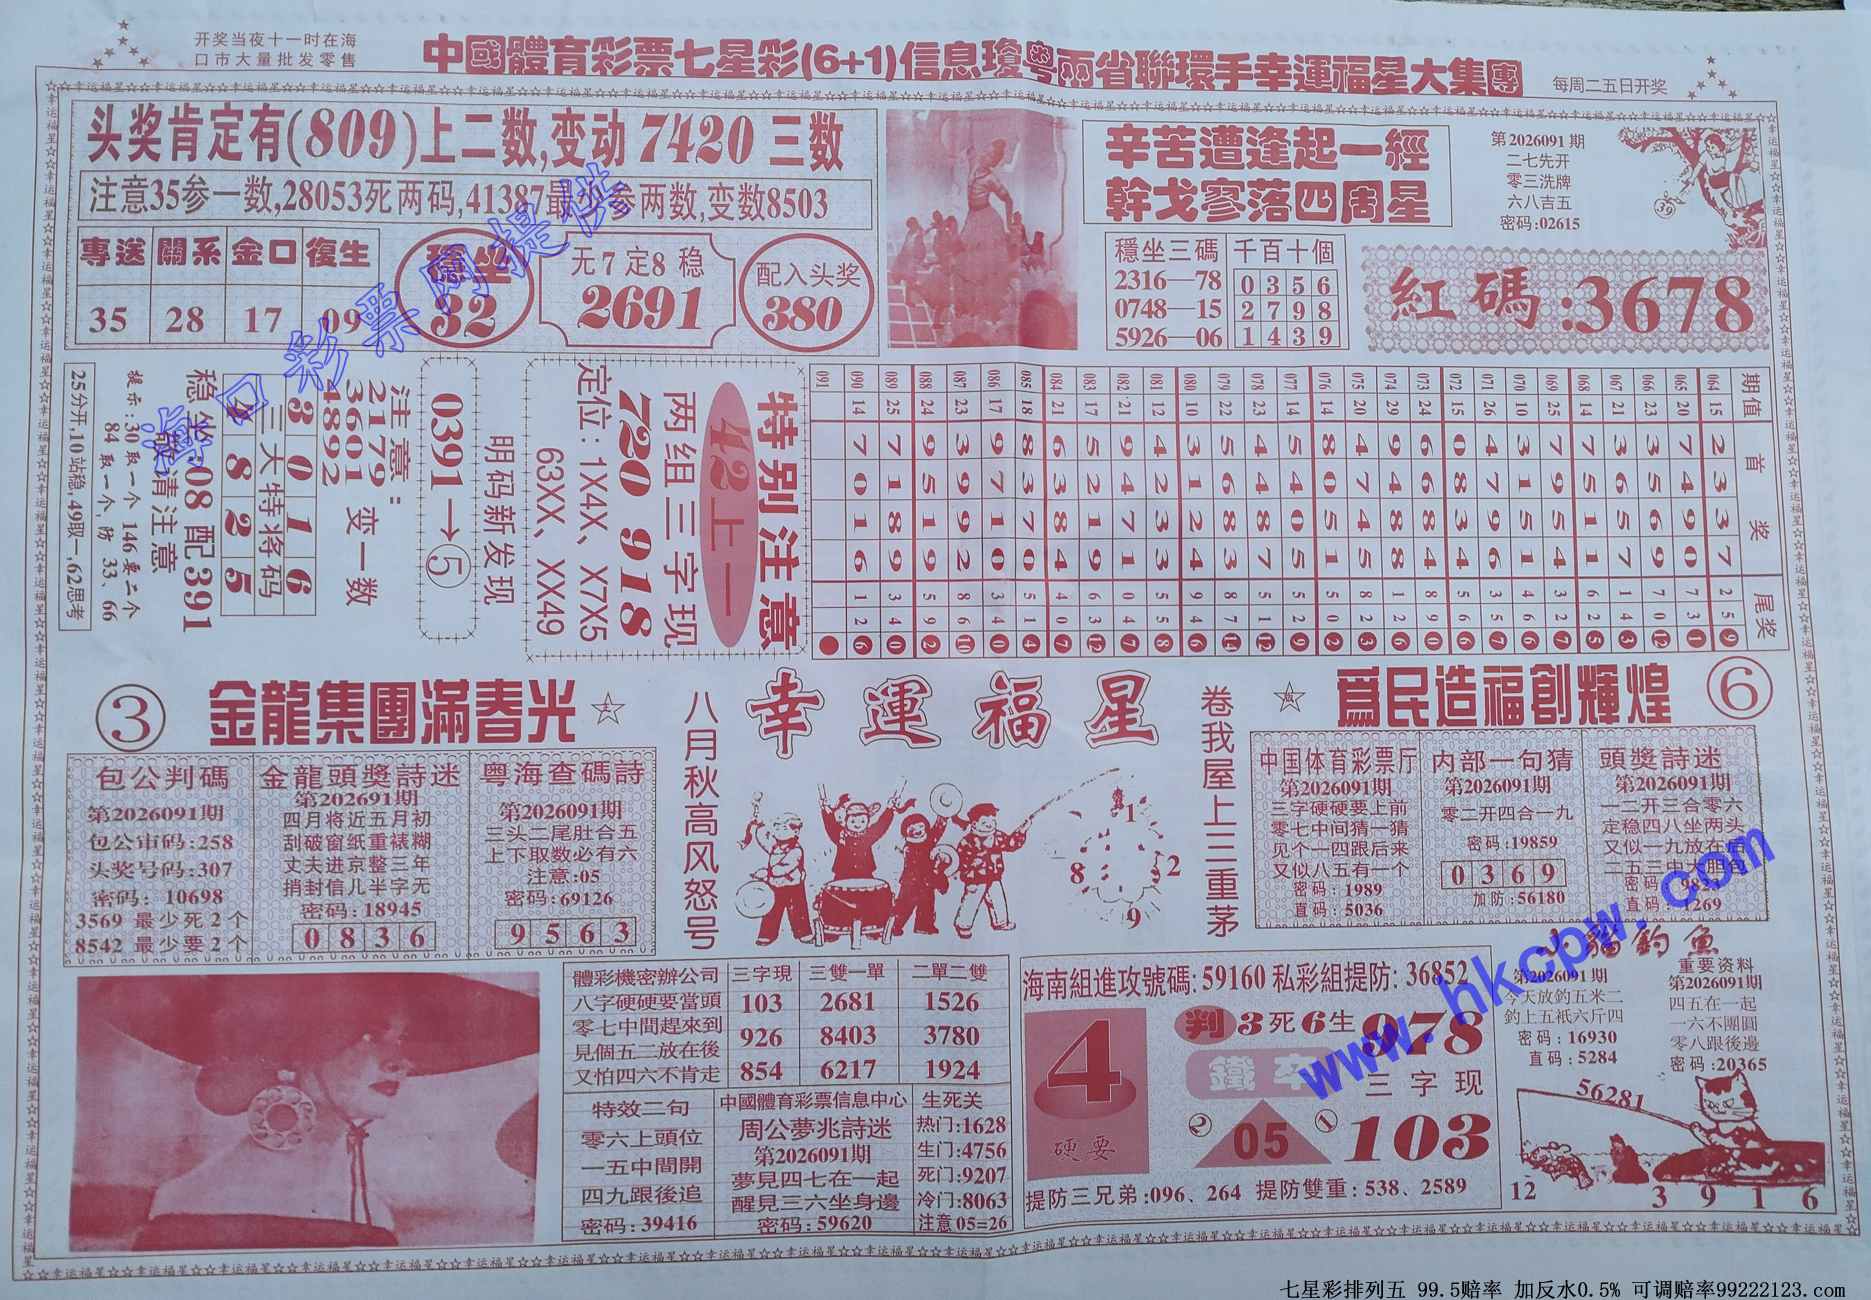 开奖当夜十一时在海
口市大量批发零售
中國體育彩票七星彩(6+1)信息瓊粤兩省聯環手幸運福星大集團
每周二五日开奖
头奖肯定有(809)上二数,变动7420三数
注意35参一数,28053死两码,41387最少参两数,变数8503
專送 關系 金口 復生
35 28 17 09
穩坐
32
无7定8稳
2691
配入头奖
380
辛苦遭逢起一經
幹戈寥落四周星
穩坐三碼
2316—78
0748—15
5926—06
千百十個
0 3 5 6
2 7 9 8
1 4 3 9
第2026091期
二七先开
零三洗牌
六八吉五
密码:02615
39
紅碼:3678
25分开,10站稳,49取一,62思考
提示:30取一个 146要二个
84取一个,防33、66
敬清注意
稳坐:08配391
三大特将码
3 0 1 6
4 8 2 5
注意:
2179
3601 变一数
4892
0391→⑤
明码新发现
特别注意
42上一
两组三字现
720 918
定位:1X4X、X7X5
63XX、XX49
期值 首奖 尾奖
064 15 2 3 3 7 2 5 9
065 20 7 4 9 0 7 3 1
066 23 3 5 6 9 7 0 12
067 21 6 6 5 7 1 4 3
068 14 7 5 1 1 6 2 5
069 25 7 9 5 4 3 2 7
070 10 3 1 5 1 4 6 6
071 26 4 7 9 6 3 5 7
072 15 0 8 3 4 5 6 6
073 24 6 6 8 4 8 9 0
074 29 9 4 8 8 1 2 6
075 20 4 7 4 5 8 2 3
076 14 8 0 5 1 5 0 2
077 14 5 4 0 5 2 9 9
078 27 4 4 8 7 5 1 12
079 22 6 6 8 3 8 7 14
080 10 3 1 2 4 9 4 6
081 12 4 2 3 3 5 5 8
082 21 9 4 7 1 0 4 7
083 17 5 2 1 9 6 3 12
084 21 6 3 8 4 4 0 7
085 18 8 3 7 0 5 1 4
086 17 9 7 1 0 3 4 0
087 23 3 9 9 2 8 6 10
088 24 9 5 1 9 5 9 2
089 25 7 1 8 9 3 4 0
090 14 7 0 1 6 1 2 6
091
③ 金龍集團滿春光
八月秋高风怒号
幸運福星
卷我屋上三重茅
爲民造福創輝煌 ⑥
包公判碼
第2026091期
包公审码:258
头奖号码:307
密码: 10698
3569 最少死2个
8542 最少要2个
金龍頭獎詩迷
第202691期
四月将近五月初
刮破窗纸重裱糊
丈夫进京整三年
捎封信儿半字无
密码:18945
0 8 3 6
粤海查碼詩
第2026091期
三头二尾肚合五
上下取数必有六
注意:05
密码:69126
9 5 6 3
1
2
8
9
中国体育彩票厅
第2026091期
三字硬硬要上前
零七中间猜一猜
见个一四跟后来
又似八五有一个
密码:1989
直码:5036
内部一句猜
第2026091期
零二开四合一九
密码:19859
0 3 6 9
加防:56180
頭獎詩迷
第2026091期
一二开三合零六
定稳四八坐两头
又似一九放在后
二五三中大胆包
體彩機密辦公司
八字硬硬要當頭
零七中間趕來到
見個五二放在後
又怕四六不肯走
三字現 三雙一單 二單二雙
103 2681 1526
926 8403 3780
854 6217 1924
特效二句
零六上頭位
一五中間開
四九跟後追
密码:39416
中國體育彩票信息中心
周公夢兆詩迷
第2026091期
夢見四七在一起
醒見三六坐身邊
密码:59620
生死关
热门:1628
生门:4756
死门:9207
冷门:8063
注意05=26
海南組進攻號碼:59160 私彩組提防:36852
4
硬要
判3死6生
978
鐵卒
三字现
② 05 ①
103
提防三兄弟:096、264 提防雙重:538、2589
小貓釣魚
第2026091期
今天放釣五米二
釣上五衹六斤四
密码:16930
直码:5284
重要资料
第2026091期
四五在一起
一六不團圓
零八跟後邊
密码:20365
56281
12
3 9 1 6
海口彩票网提供
www.hkcpw.com
七星彩排列五 99.5赔率 加反水0.5% 可调赔率99222123.com